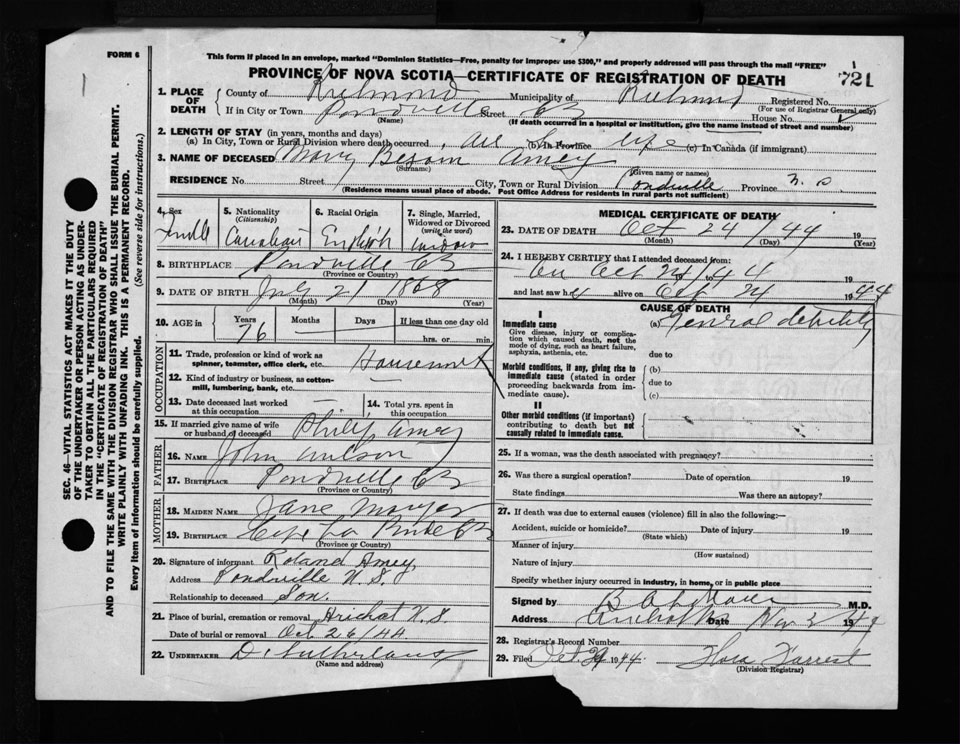 FORM 6
This form if placed in an envelope, marked "Dominion Statistics—Free, penalty for improper use $300," and properly addressed will pass through the mail "FREE"
PROVINCE OF NOVA SCOTIA—CERTIFICATE OF REGISTRATION OF DEATH
1
721
1. PLACE OF DEATH
County of Richmond Municipality of Richmond Registered No.
(For use of Registrar General only)
If in City or Town Pondville Street C B House No.
(Name) (If death occurred in a hospital or institution, give the name instead of street and number)
2. LENGTH OF STAY (in years, months and days)
(a) In City, Town or Rural Division where death occurred, all her life (b) In Province (c) In Canada (if immigrant)
3. NAME OF DECEASED Mary Amey
(Surname) (Given name or names)
RESIDENCE No. Street City, Town or Rural Division Pondville Province N. S
(Residence means usual place of abode. Post Office Address for residents in rural parts not sufficient)
4. Sex
5. Nationality (Citizenship)
6. Racial Origin
7. Single, Married, Widowed or Divorced (write the word)
Female Canadian English widow
8. BIRTHPLACE Pondville CB
(Province or Country)
9. DATE OF BIRTH July 21 1868
(Month) (Day) (Year)
10. AGE in Years Months Days If less than one day old
76 hrs. or min.
OCCUPATION
11. Trade, profession or kind of work as spinner, teamster, office clerk, etc. Housework
12. Kind of industry or business, as cotton-mill, lumbering, bank, etc. —
13. Date deceased last worked at this occupation —
14. Total yrs. spent in this occupation
15. If married give name of wife or husband of deceased Philip Amey
FATHER
16. NAME John Wilson
17. BIRTHPLACE Pondville CB
(Province or Country)
MOTHER
18. MAIDEN NAME Jane
19. BIRTHPLACE Cape La Ronde CB
(Province or Country)
20. Signature of informant Roland Amey
Address Pondville N. S.
Relationship to deceased Son.
21. Place of burial, cremation or removal Arichat N. S
Date of burial or removal Oct 26/44
22. UNDERTAKER D. Sutherland
(Name and address)
MEDICAL CERTIFICATE OF DEATH
23. DATE OF DEATH Oct 24/44 19
(Month) (Day) (Year)
24. I HEREBY CERTIFY that I attended deceased from:
on Oct 24 to 44 19
and last saw her alive on Oct 24 1944
CAUSE OF DEATH
I
Immediate cause
Give disease, injury or complication which caused death, not the mode of dying, such as heart failure, asphyxia, asthenia, etc.
(a) General debility
due to
Morbid conditions, if any, giving rise to immediate cause (stated in order proceeding backwards from immediate cause).
(b)
due to
(c)
II
Other morbid conditions (if important) contributing to death but not causally related to immediate cause.
25. If a woman, was the death associated with pregnancy?
26. Was there a surgical operation? Date of operation 19
State findings Was there an autopsy?
27. If death was due to external causes (violence) fill in also the following:—
Accident, suicide or homicide? Date of injury 19
(State which)
Manner of injury
(How sustained)
Nature of injury
Specify whether injury occurred in industry, in home, or in public place
Signed by M.D.
Address Arichat NS Date Nov 2 44
28. Registrar's Record Number
29. Filed Oct 29 1944. Flora Forrest
(Division Registrar)
SEC. 46—VITAL STATISTICS ACT MAKES IT THE DUTY
OF THE UNDERTAKER OR PERSON ACTING AS UNDER-
TAKER TO OBTAIN ALL THE PARTICULARS REQUIRED
IN THE "CERTIFICATE OF REGISTRATION OF DEATH"
AND TO FILE THE SAME WITH THE DIVISION REGISTRAR WHO SHALL ISSUE THE BURIAL PERMIT.
WRITE PLAINLY WITH UNFADING INK. THIS IS A PERMANENT RECORD.
Every item of information should be carefully supplied. (See reverse side for instructions.)